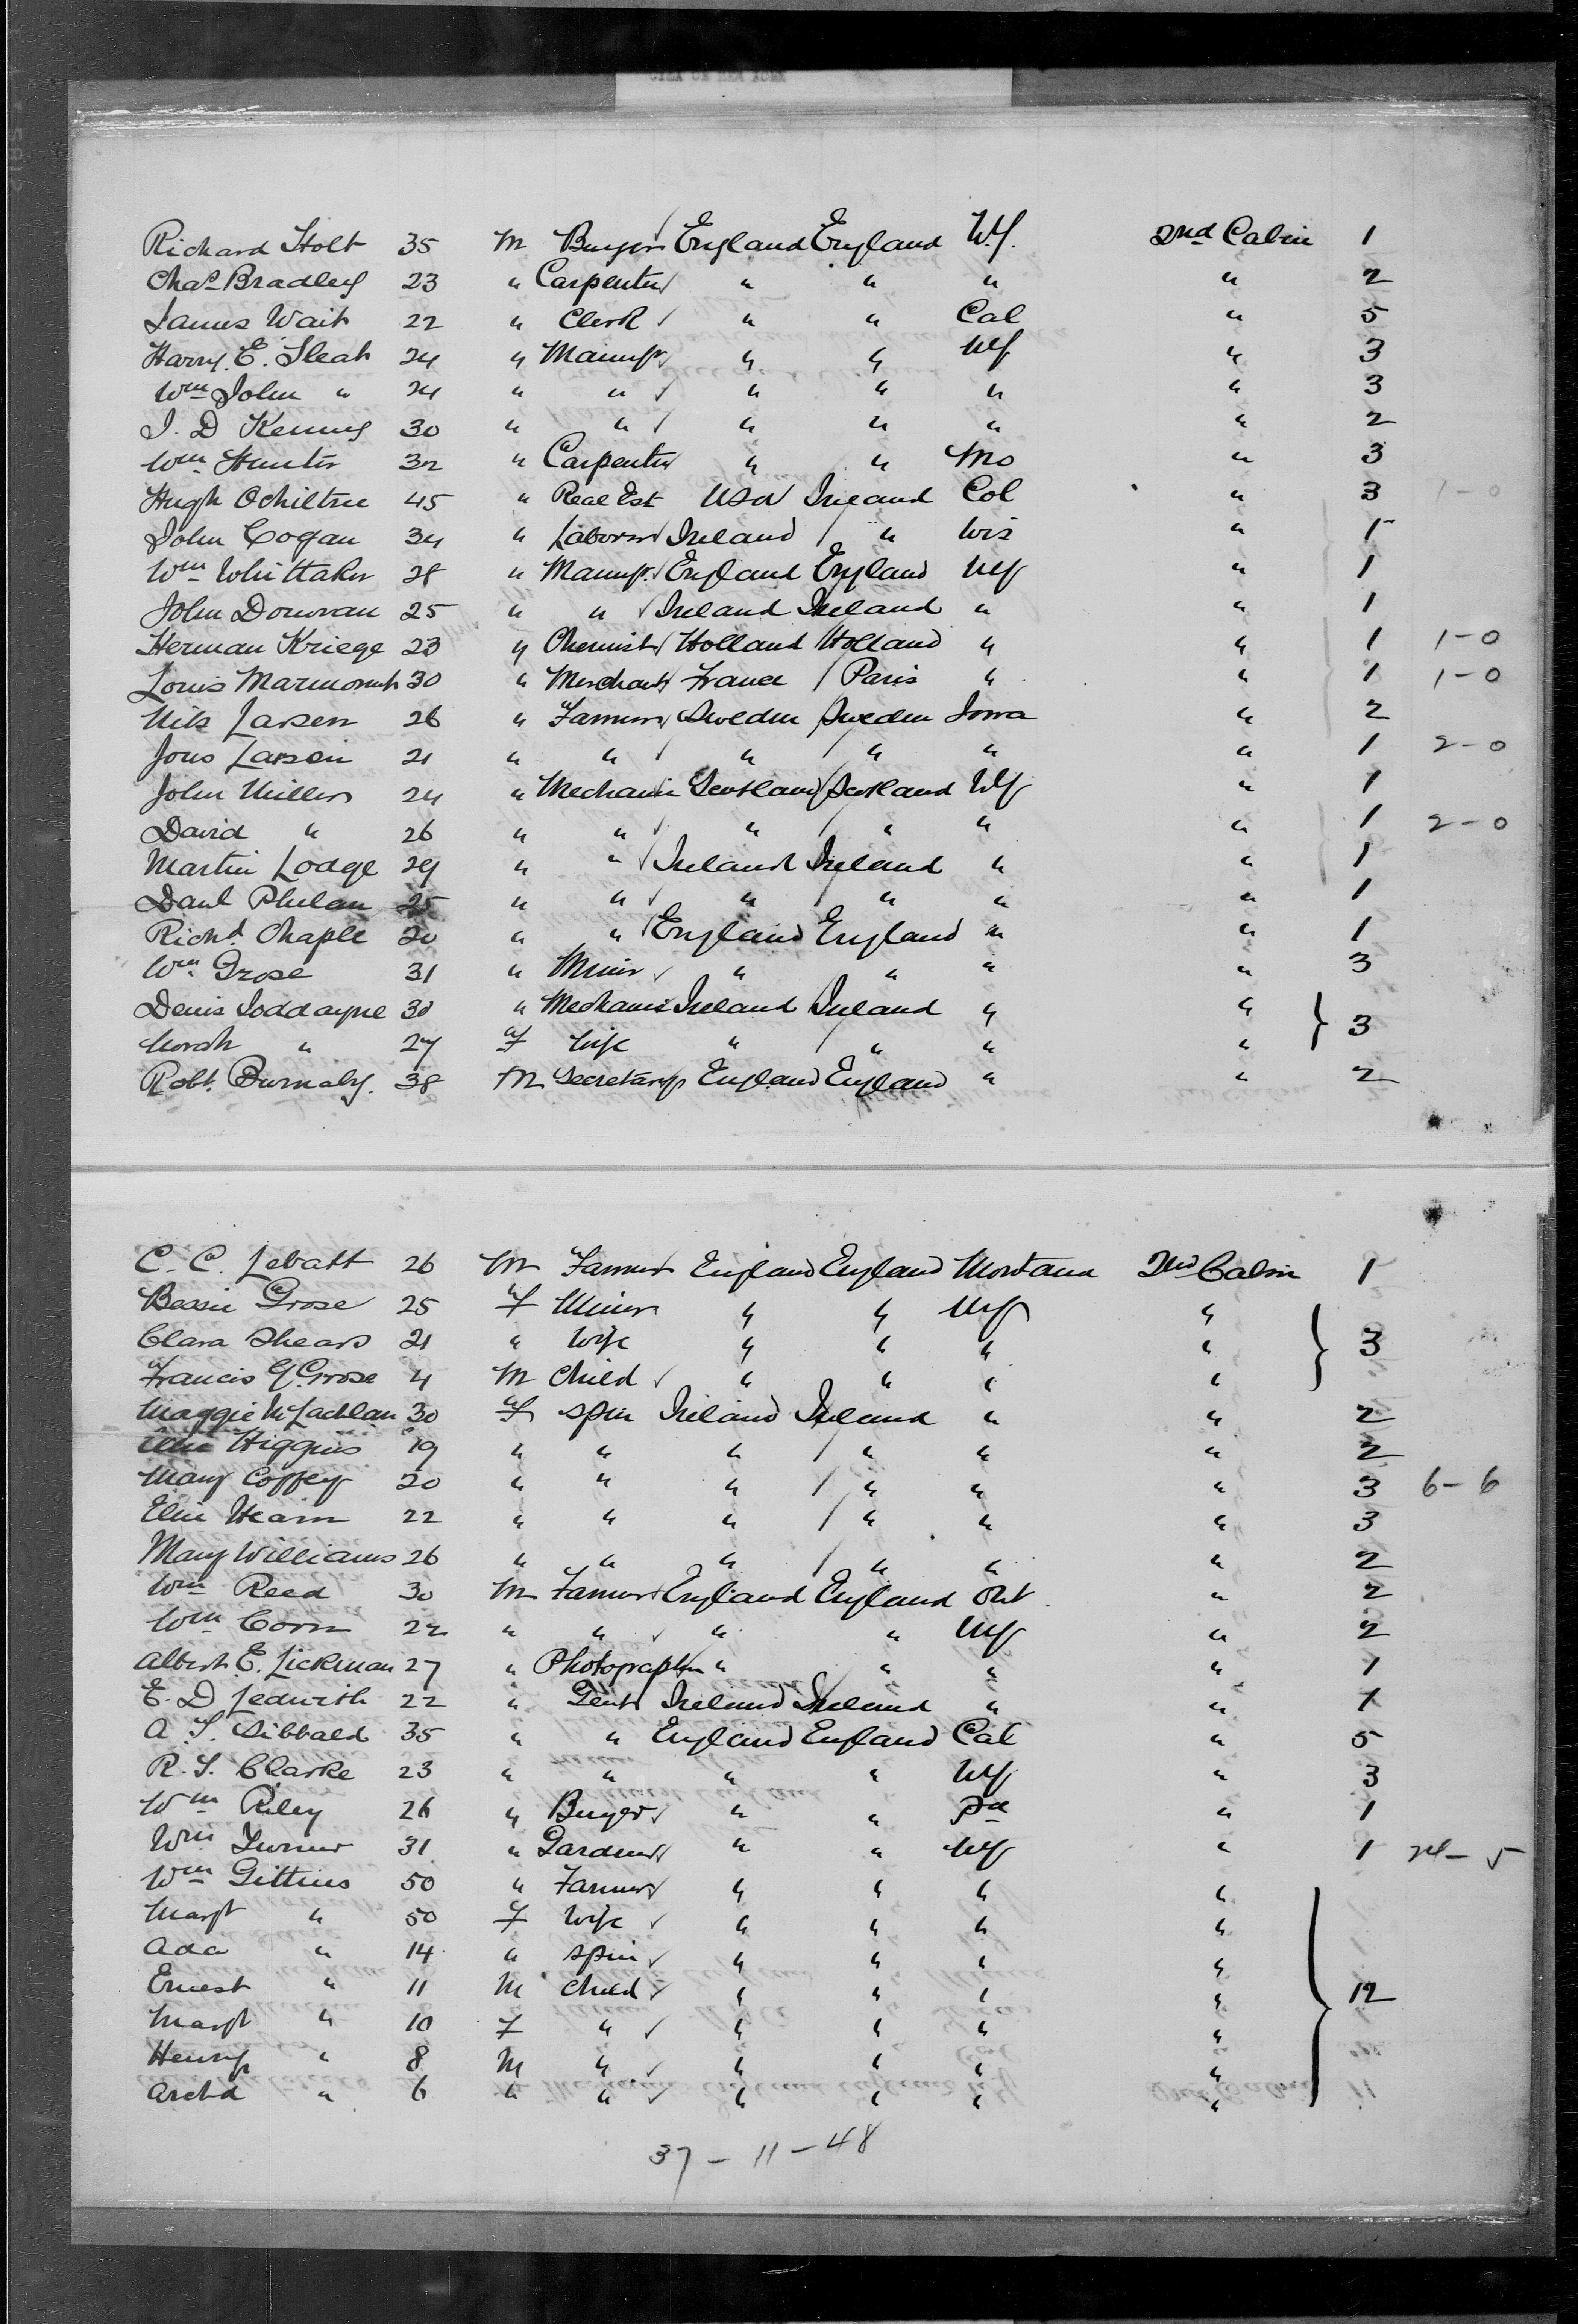 Richard Holt 35 M Buyer England England N.Y. 2nd Cabin 1
Chas Bradley 23 " Carpenter " " " " 2
James Wait 22 " Clerk " " Cal " 5
Harry. E. Sleah 24 " Manufr " " NY " 3
Wm John " 24 " " " " " " 3
J. D Kenny 30 " " " " " " 2
Wm Hunter 32 " Carpenter " " Mo " 3
Hugh Ochiltree 45 " Real Est USA Ireland Col " 3 1-0
John Cogan 34 " Laborer Ireland " Wis " 1
Wm Whittaker 28 " Manufr. England England NY " 1
John Donovan 25 " " Ireland Ireland " " 1
Herman Kriege 23 " Chemist Holland Holland " " 1 1-0
Louis 30 " Merchant France Paris " " 1 1-0
Nils Larsen 26 " Farmer Sweden Sweden Iowa " 2
Jons Larsen 21 " " " " " " 1 2-0
John Miller 24 " Mechanic Scotland Scotland NY " 1
David " 26 " " " " " " 1 2-0
Martin Lodge 29 " " Ireland Ireland " " 1
Danl Phelan 25 " " " " " " 1
Richd. Chaple 20 " " England England " " 1
Wm Grose 31 " Miner " " " " 3
Denis 30 " Mechanic Ireland Ireland " " 3
Norah " 27 F Wife " " " "
Robt. Burnaby. 38 M Secretary England England " " 2
C. C. Lebatt 26 M Farmer England England Montana 2nd Cabin 1
Bessie Grose 25 F Miner " " NY "
Clara Shears 21 " Wife " " " " 3
Francis G. Grose 4 M Child " " " "
Maggie McLachlan 30 F Spin Ireland Ireland " " 2
Higgins 19 " " " " " " 2
Mary Coffey 20 " " " " " " 3 6-6
Ellie Hearn 22 " " " " " " 3
Mary Williams 26 " " " " " " 2
Wm Reed 30 M Farmer England England Ont " 2
Wm Corn 22 " " " " NY " 2
Albert E. Lickman 27 " Photographer " " " " 1
E. D Ledwith 22 " Gent Ireland Ireland " " 1
A. T. Sibbald 35 " " England England Cal " 5
R. T. Clarke 23 " " " " NY " 3
Wm Riley 26 " Buyer " " Pa " 1
Wm Turner 31 " Gardener " " NY " 1 24-5
Wm Gittins 50 " Farmer " " " "
Margt " 50 F Wife " " " "
Ada " 14 " Spin " " " "
Ernest " 11 M Child " " " " 12
Margt " 10 F " " " " "
Henry " 8 M " " " " "
Archd " 6 " " " " " "
37-11-48